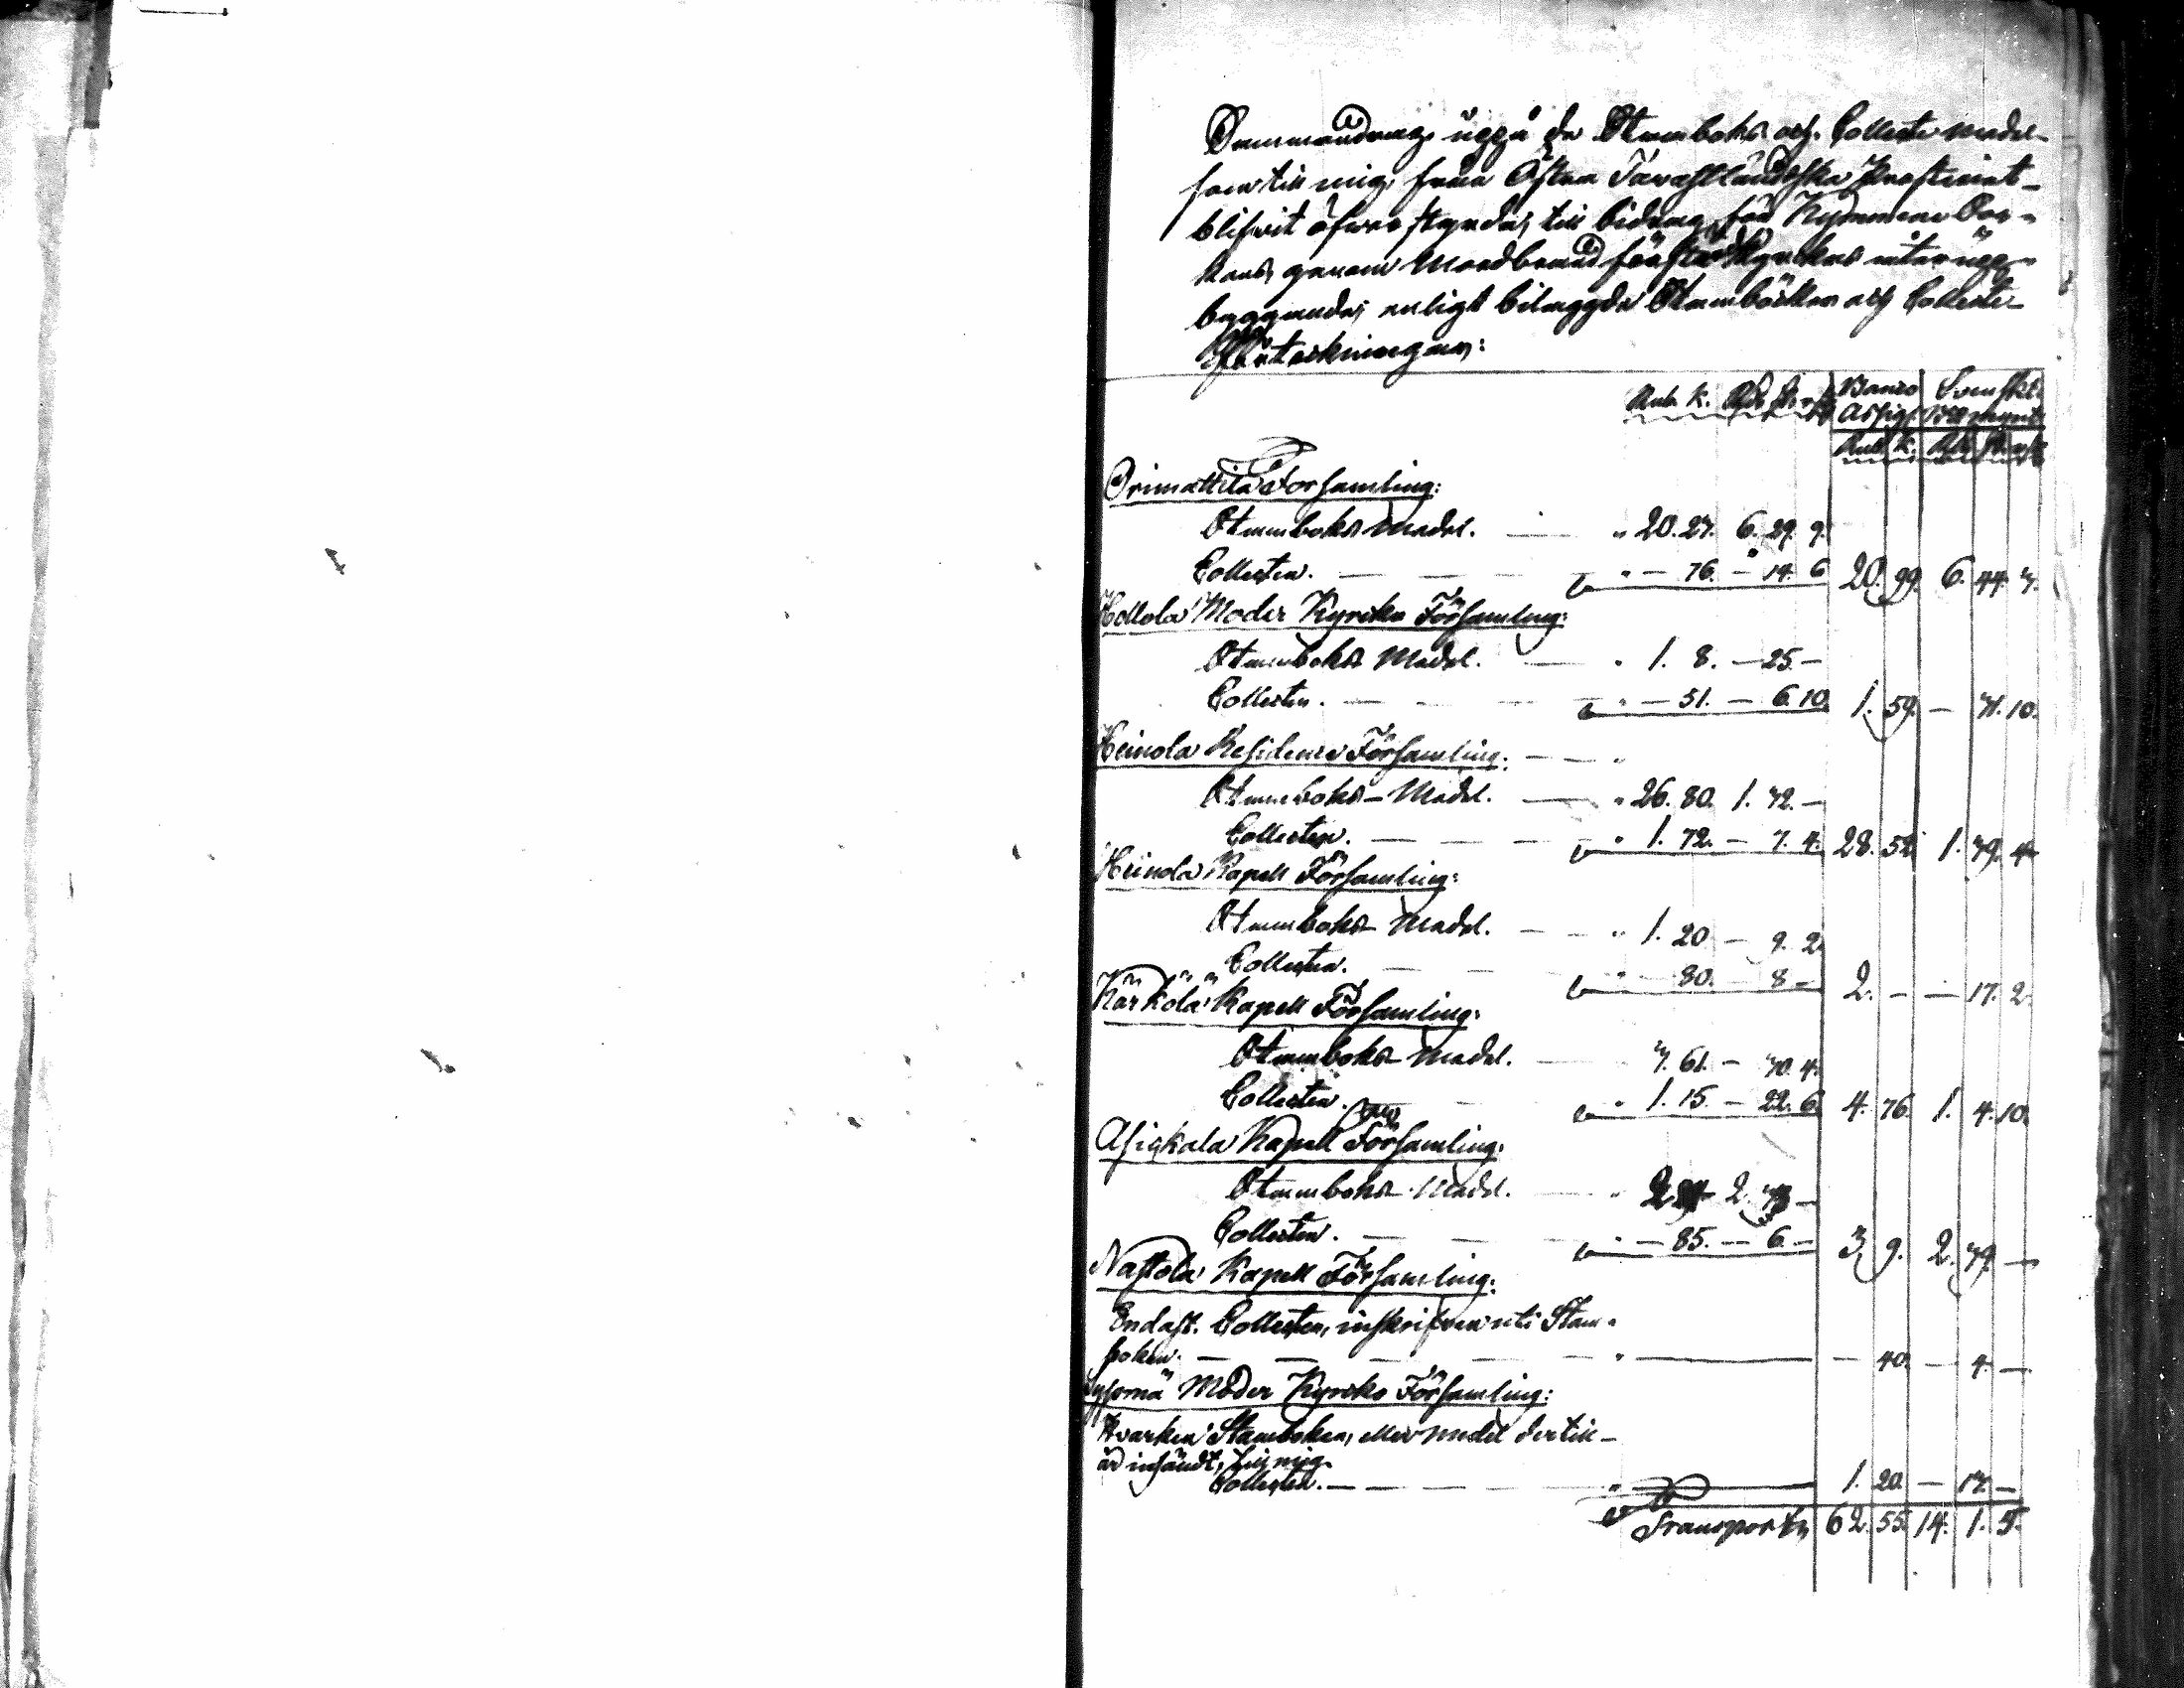 Sammandrag, uppå de Stamboks och Collecte medel
som till mig, från Öfra Tavastländska Prosteriet
blifvit öfversända, till bidrag för Kymmene Soc-
kens, genom Mordbrand förstörda Kyrkas återupp-
byggande, enligt bilaggde Stamböcker och Collecte
Förteckningar:
Rub. K. Rdr s. r. Banco Svenskt
Assign. mynt
Rub. K. Rdr s. r.
Orimattila Församling:
Stamboks Medel. — " 20. 27. 6. 29. 9.
Collecten. — — — " — 76. — 14. 6 20. 99. 6. 44. 3.
Hollola Moder Kyrko Församling:
Stamboks Medel. — " 1. 8. — 25. —
Collecten. — — — " — 51. — 6. 10. 1. 59. — 31. 10.
Heinola Residence Församling. — — "
Stamboks-Medel. — " 26. 80. 1. 42. —
Collecten. — — — " 1. 72. — 7. 4. 28. 52. 1. 49. 4
Heinola Kapell Församling:
Stamboks Medel. — — " 1. 20. — 9. 2
Collecten. — — " — 80. — 8 — 2. — — 17. 2.
Kärkölä Kapell Församling:
Stamboks Medel. — 3. 61. — 30. 4.
Collecten. — " 1. 15. — 22. 6. 4. 76. 1. 4. 10.
Asickala Kapell Församling:
Stamboks Medel. — " 2. 24 2. —
Collecten. — — — " — 85. — 6. — 3. 9. 2. 39. —
Nastola Kapell Församling:
Endast Collecten, inskrifven uti Stam-
boken. — — — — " — — 40. — 4. —
Sysmä Moder Kyrko Församling:
Hvarken Stamboken, eller medel dertill
är insändt, till mig.
Collecten. — — — " — 1. 20. — 17. —
Transport 62. 55. 14. 1. 5.